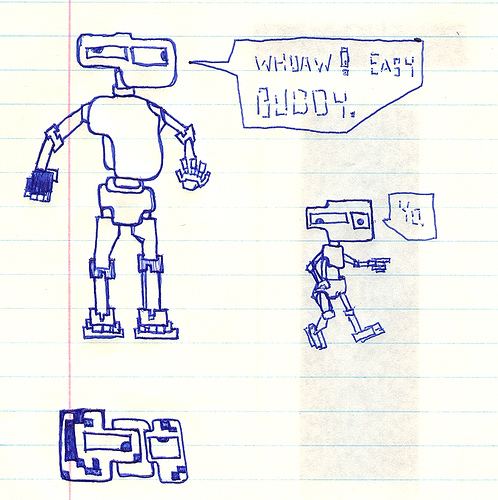 WHOAW! EASY
BUDDY.
YO.